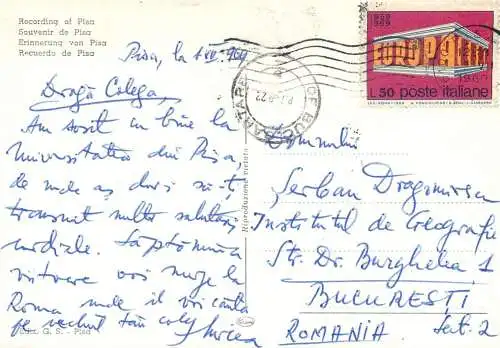 Recording of Pisa
Souvenir de Pisa
Erinnerung von Pisa
Recuerdo de Pisa
Pisa, la
Dragă Colega,
Am sosit cu bine la
Universitatea din Pisa,
de unde aș dori să-ți
transmit multe salutări
cordiale. Săptămîna
viitoare voi merge la
Roma unde îl voi căuta
pe vechiul tău coleg Mircea
Ediz. G. S. - Pisa
Riproduzione vietata
EUROPA
L.50 poste italiane
Domnului
Șerban Dragomirescu
Institutul de Geografie
Str. Dr. Burghelea 1
BUCUREȘTI
ROMANIA Sect. 2